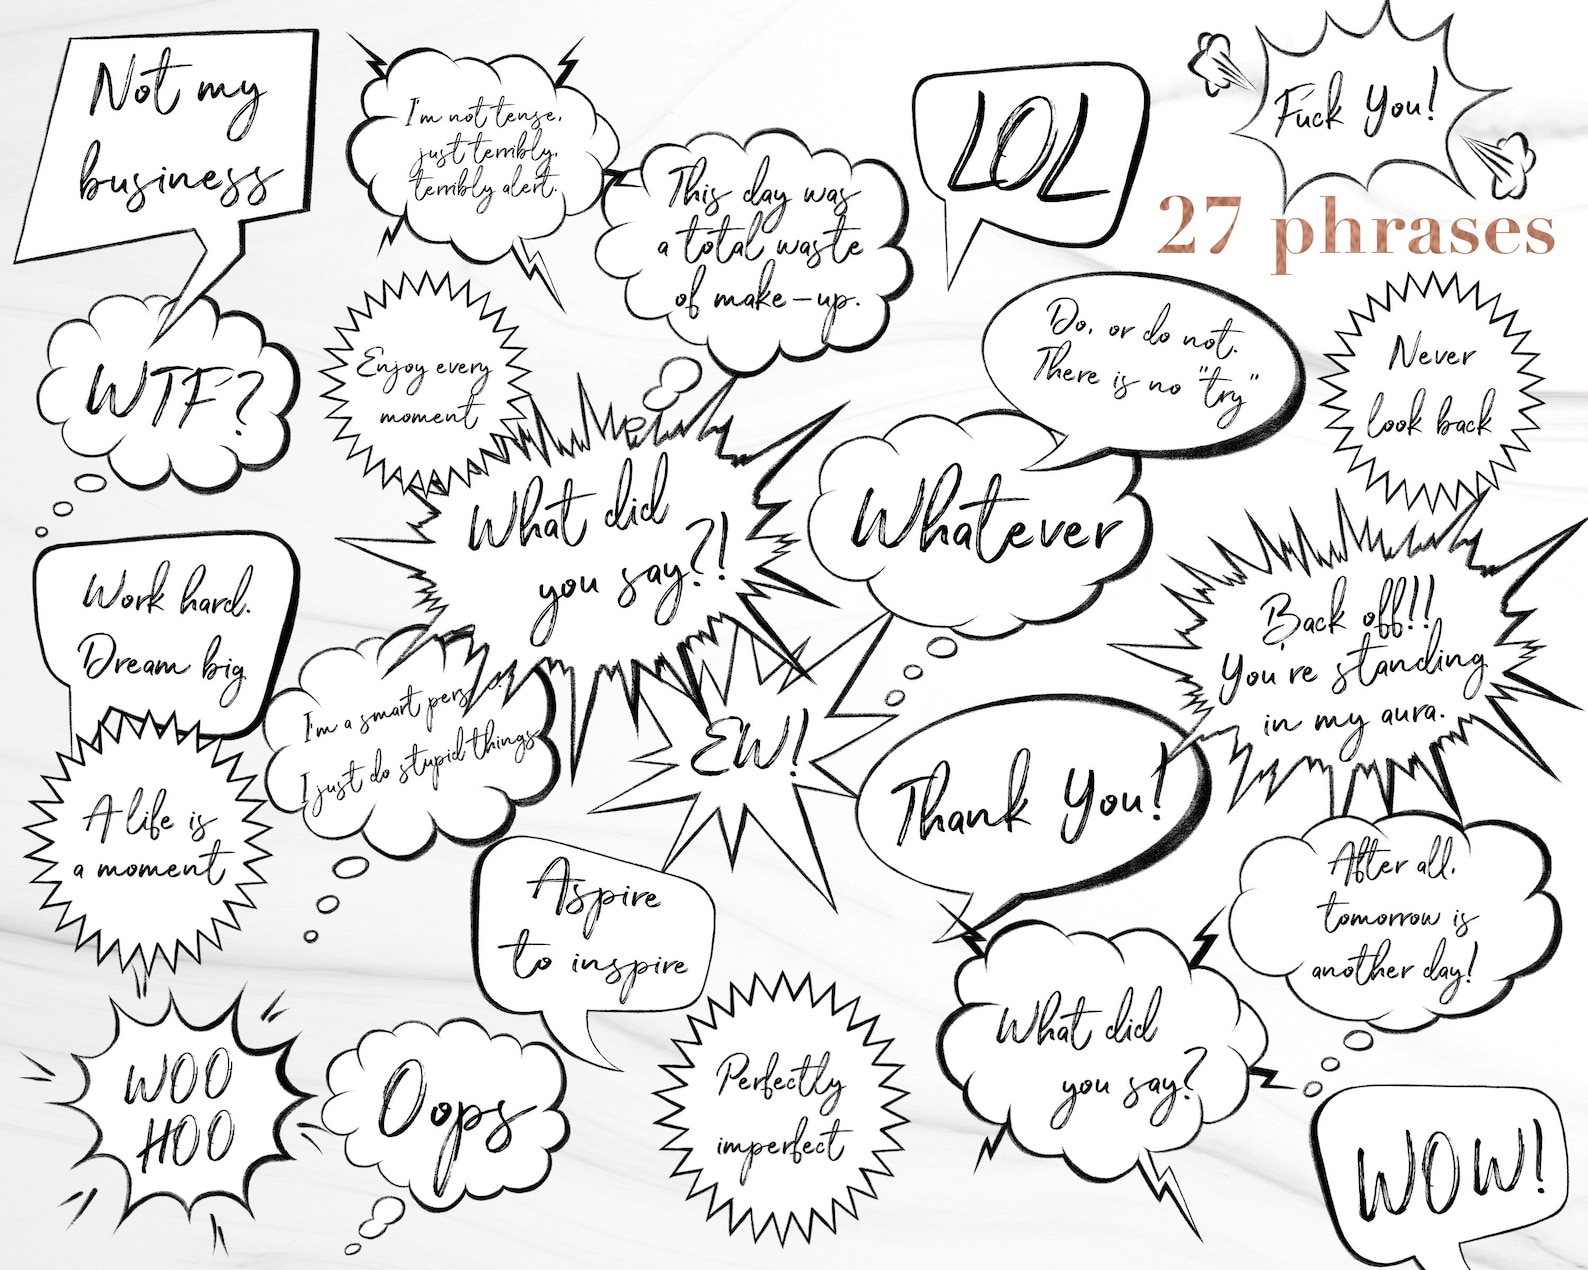 Not my
business
I'm not tense,
just terribly,
terribly alert.
This day was
a total waste
of make-up.
LOL
Fuck You!
27 phrases
WTF?
Enjoy every
moment
Do, or do not.
There is no "try"
Never
look back
What did
you say?!
Whatever
Work hard.
Dream big
Back off!!
You're standing
in my aura.
I'm a smart
I just do stupid things
EW!
Thank You!
A life is
a moment
Aspire
to inspire
After all,
tomorrow is
another day!
WOO
HOO
Oops
Perfectly
imperfect
What did
you say?
WOW!